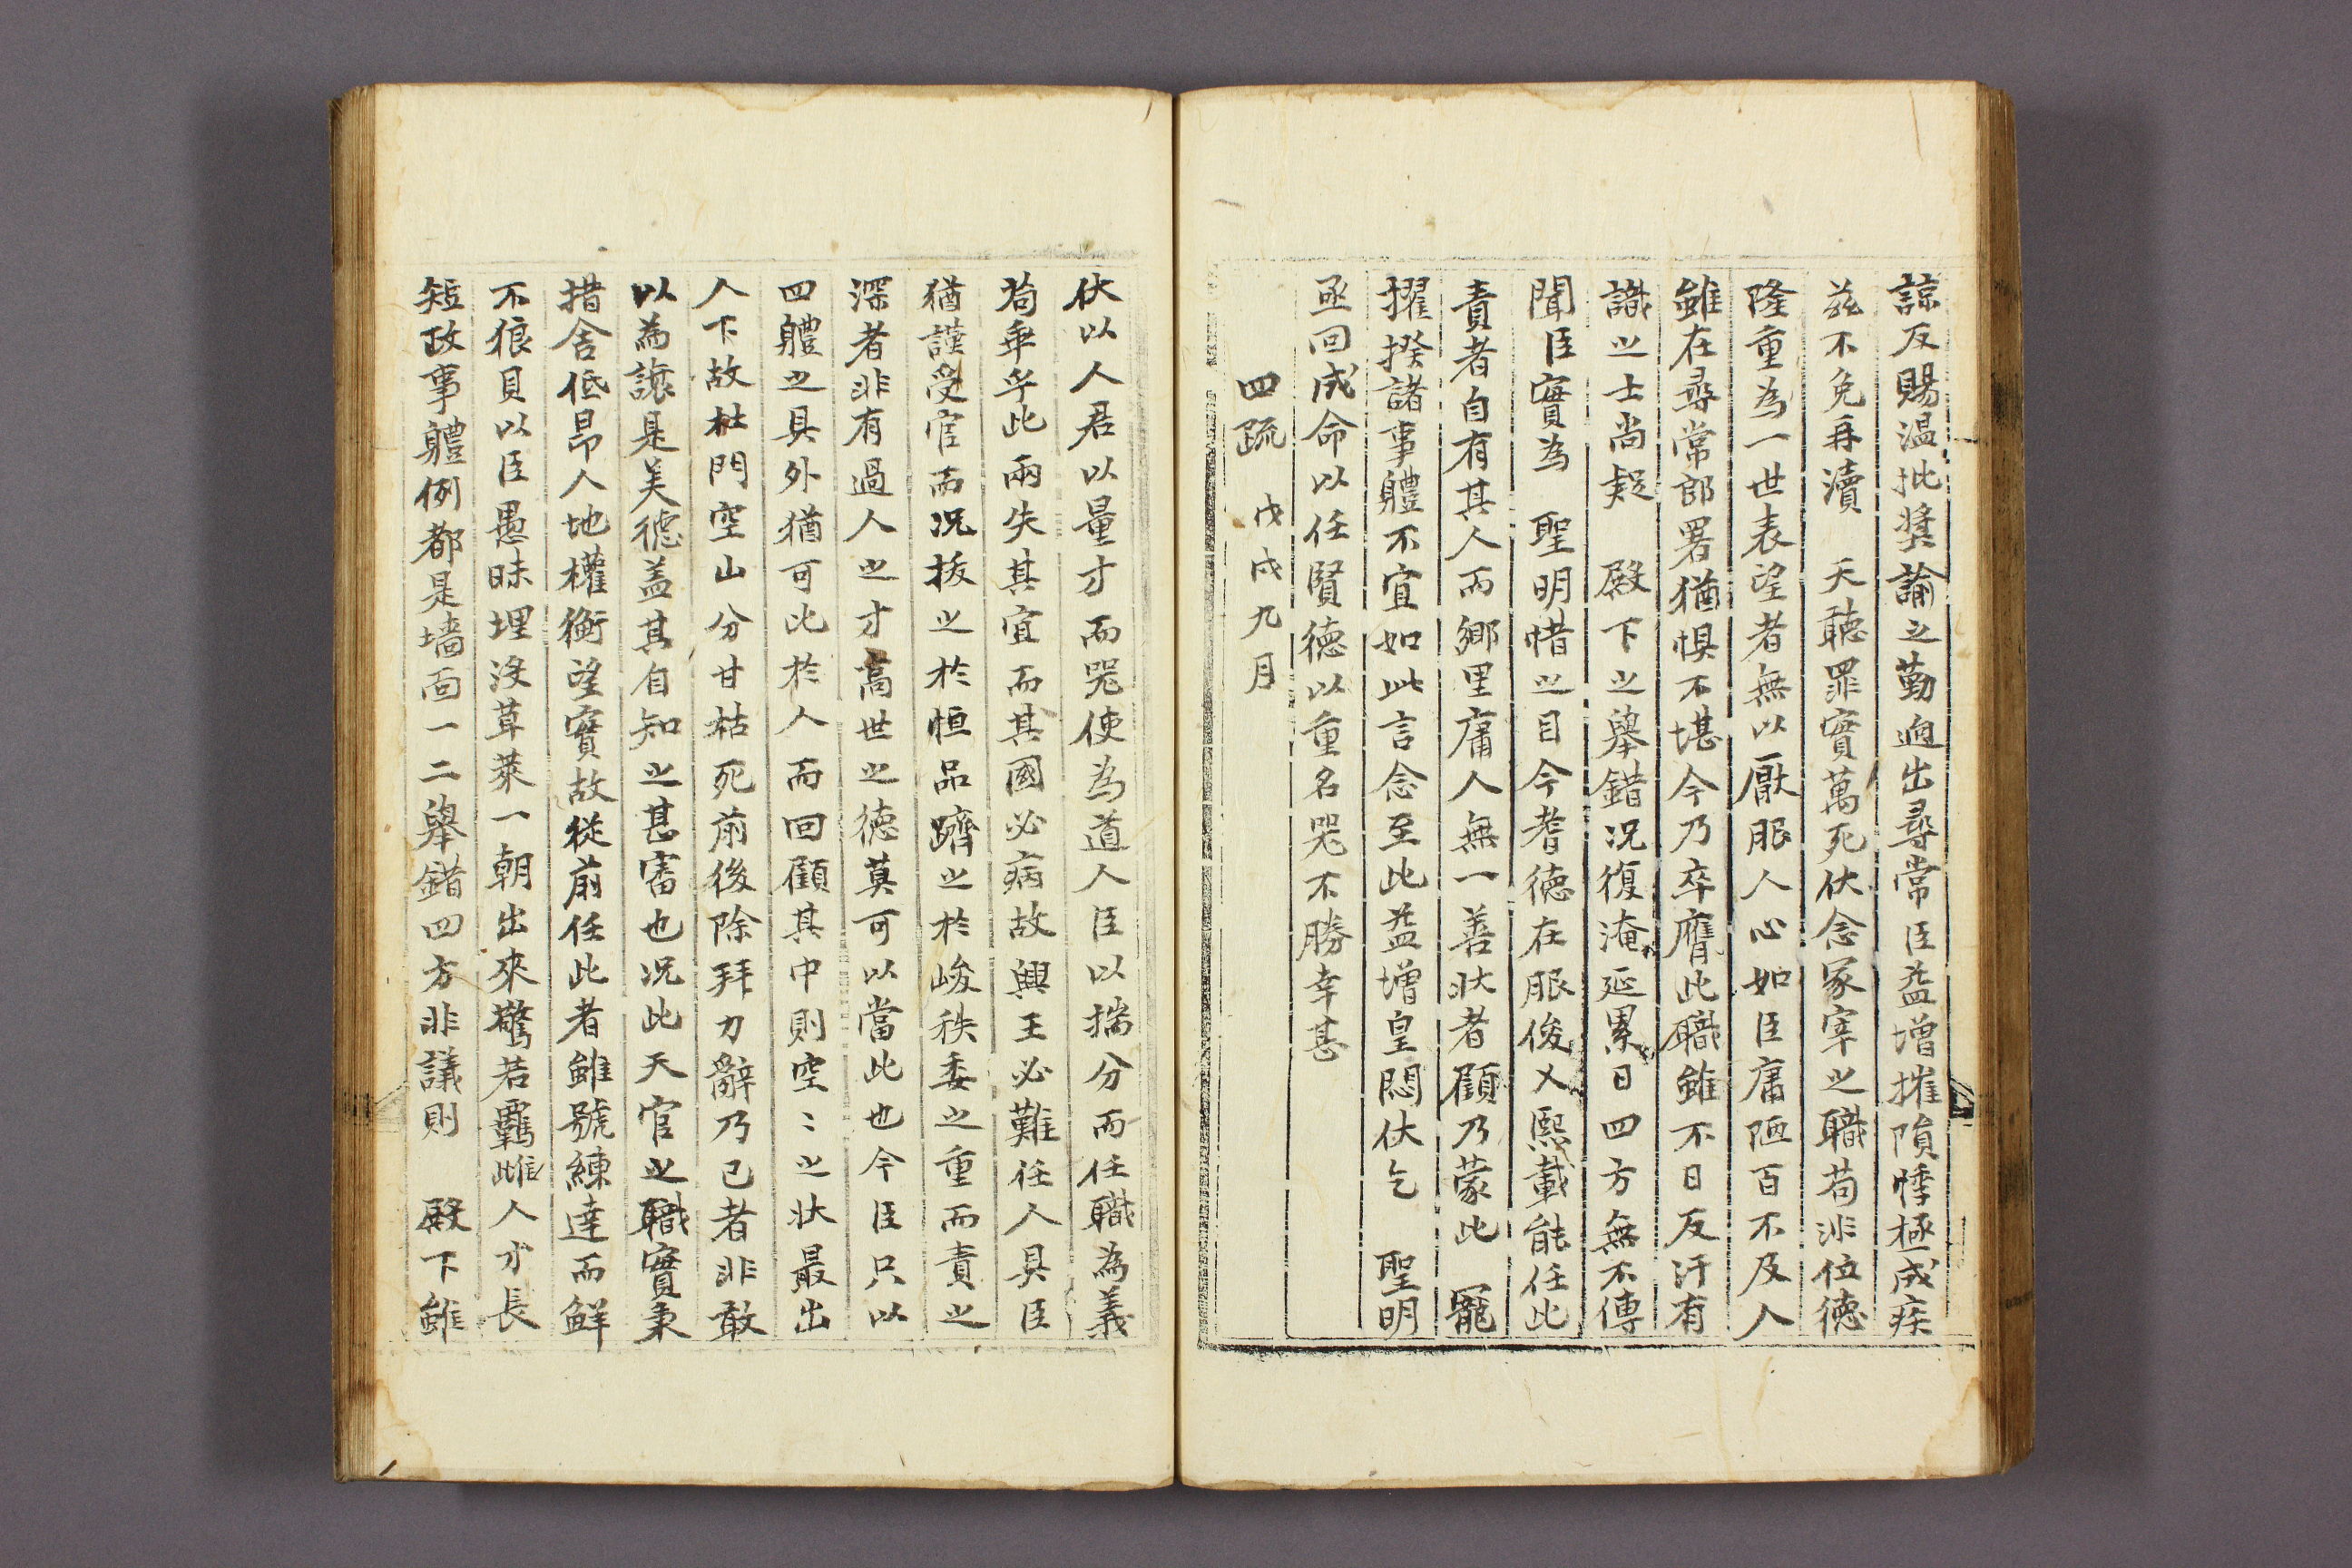 諒反賜温批奬諭之勤逈出尋常臣益增摧隕悸極成疾
玆不免再瀆　天聽罪實萬死伏念冢宰之職苟非位德
隆重為一世表望者無以厭服人心如臣庸陋百不及人
雖在尋常郎署猶惧不堪今乃卒膺此職雖不日反汗有
識之士尚疑　殿下之舉錯况復淹延累日四方無不傳
聞臣實為　聖明惜之目今耆德在服俊乂熙載能任此
責者自有其人而鄉里庸人無一善狀者顧乃蒙此　寵
擢揆諸事軆不宜如此言念至此益增皇悶伏乞　聖明
亟回成命以任賢德以重名器不勝幸甚
四疏　戊戌九月
伏以人君以量才而器使為道人臣以揣分而任職為義
苟乖乎此兩失其宜而其國必病故興王必難任人具臣
猶謹受官而况拔之於恒品躋之於峻秩委之重而責之
深者非有過人之才高世之德莫可以當此也今臣只以
四軆之具外猶可比於人而回顧其中則空〻之狀最出
人下故杜門空山分甘枯死前後除拜力辭乃已者非敢
以為讓是美德盖其自知之甚審也况此天官之職實秉
措舍低昂人地權衡望實故從前任此者雖號練達而鮮
不狼貝以臣愚昧埋沒草萊一朝出來驚若覊雌人才長
短政事軆例都是墻面一二舉錯四方非議則　殿下雖